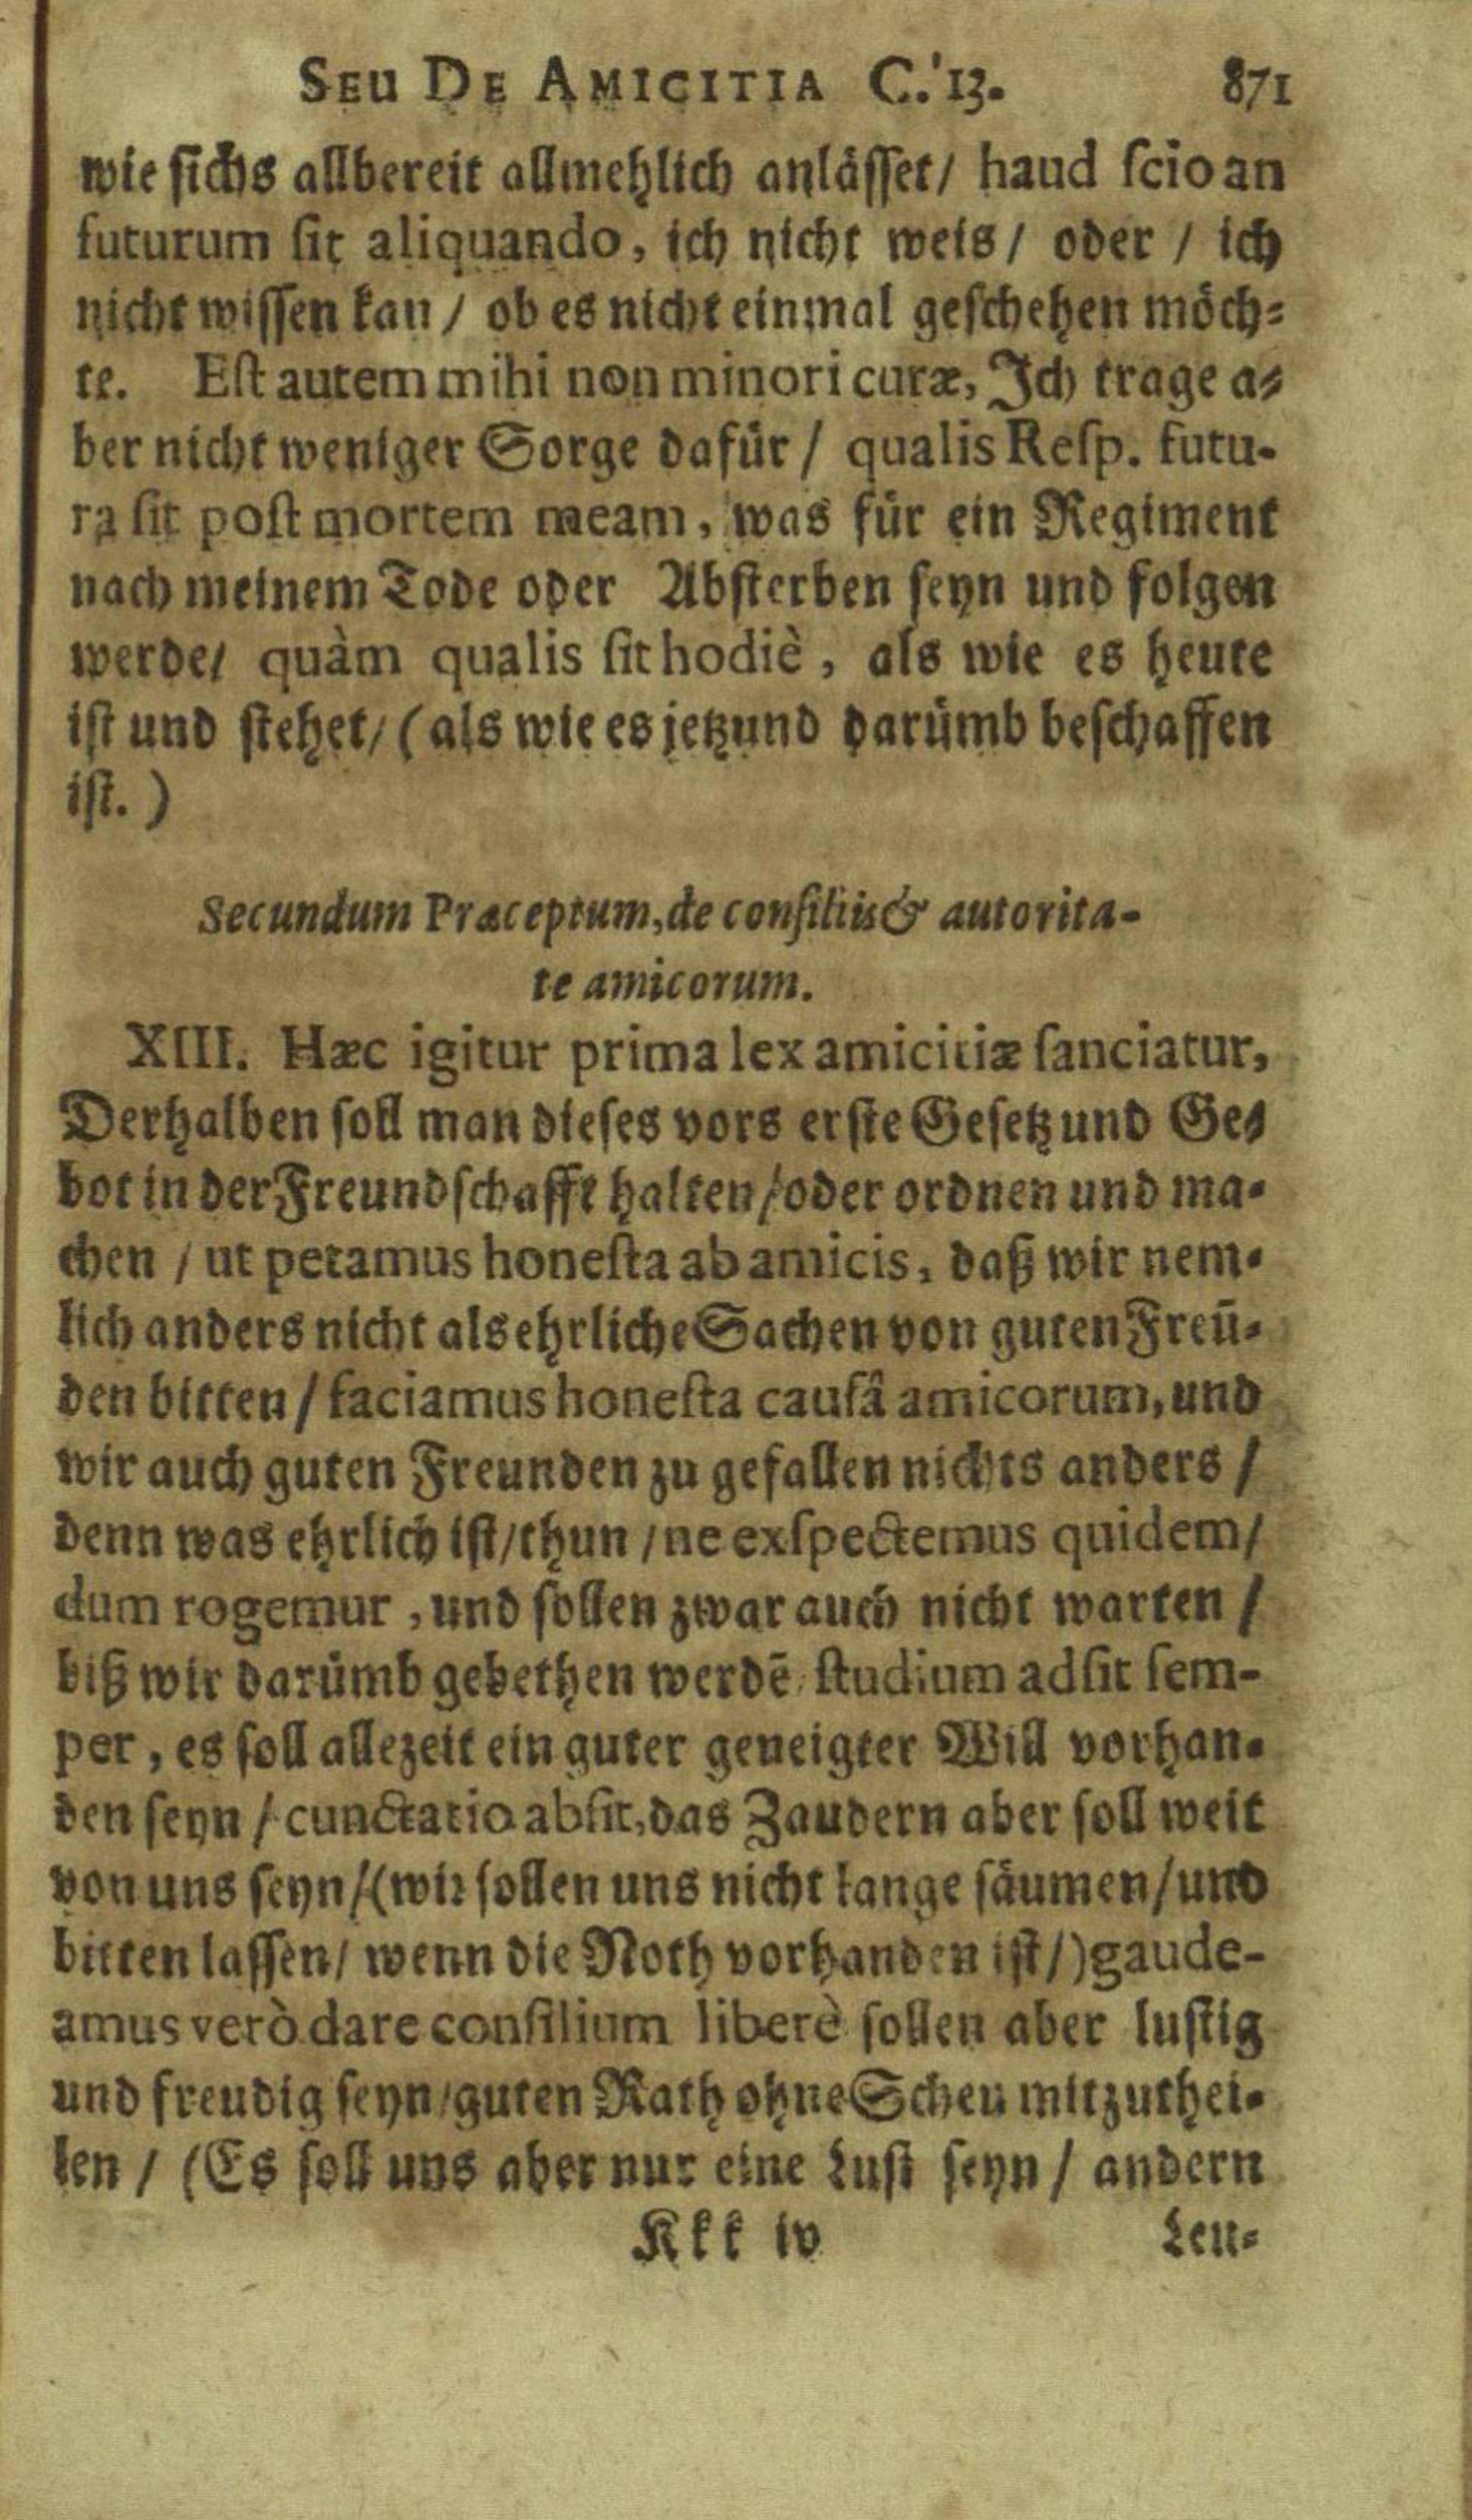 SEU DE AMICITIA C. 13. 871
wie sichs allbereit allmehlich anlässet / haud scio an
futurum sit aliquando, ich nicht weis / oder / ich
nicht wissen kan / ob es nicht einmal geschehen möch-
te. Est autem mihi non minori curæ, Ich trage a-
ber nicht weniger Sorge dafür / qualis Resp. futu-
ra sit post mortem meam, was für ein Regiment
nach meinem Tode oder Absterben seyn und folgen
werde / quàm qualis sit hodiè, als wie es heute
ist und stehet / (als wie es jetzund darümb beschaffen
ist.)
Secundum Præceptum, de consiliis & autorita-
te amicorum.
XIII. Hæc igitur prima lex amicitiæ sanciatur,
Derhalben soll man dieses vors erste Gesetz und Ge-
bot in der Freundschafft halten / oder ordnen und ma-
chen / ut petamus honesta ab amicis, daß wir nem-
lich anders nicht als ehrliche Sachen von guten Freū-
den bitten / faciamus honesta causâ amicorum, und
wir auch guten Freunden zu gefallen nichts anders /
denn was ehrlich ist / thun / ne exspectemus quidem /
dum rogemur, und sollen zwar auch nicht warten /
biß wir darümb gebethen werdē studium adsit sem-
per, es soll allezeit ein guter geneigter Will vorhan-
den seyn / cunctatio absit, das Zaudern aber soll weit
von uns seyn / (wir sollen uns nicht lange säumen / und
bitten lassen / wenn die Noth vorhanden ist /) gaude-
amus verò dare consilium liberè sollen aber lustig
und freudig seyn / guten Rath ohne Scheu mitzuthei-
len / (Es soll uns aber nur eine Lust seyn / andern
Kkk iv Leu-